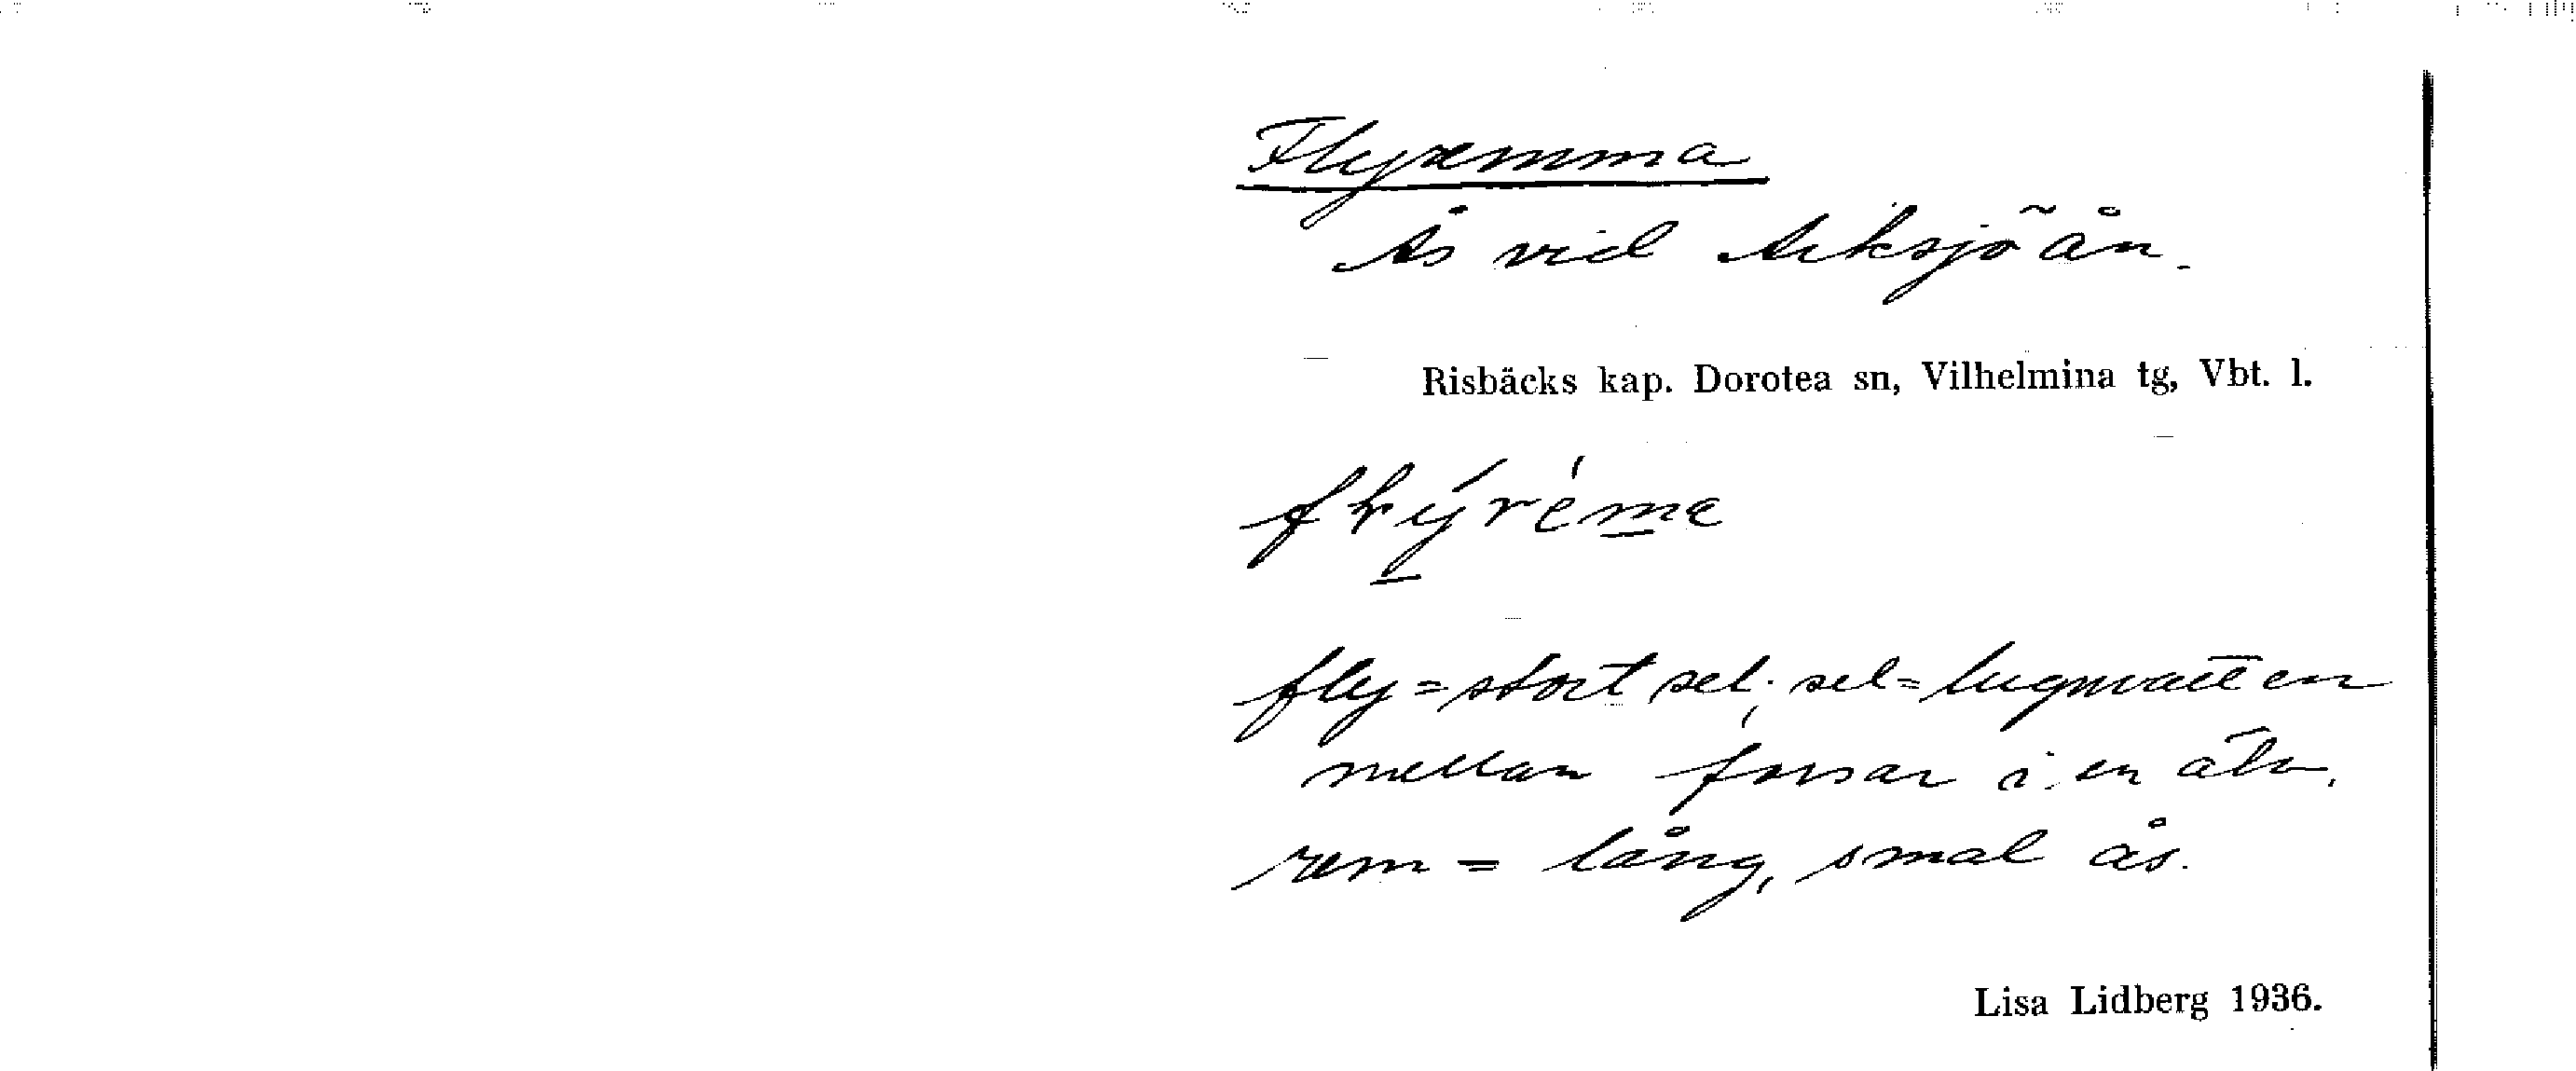 Flyremma
Ås vid Arksjöån.
Risbäcks kap. Dorotea sn, Vilhelmina tg, Vbt. l.
fly = stort sel; sel = lugnvatten
mellan forsar i en älv.
rem = lång, smal ås.
Lisa Lidberg 1936.